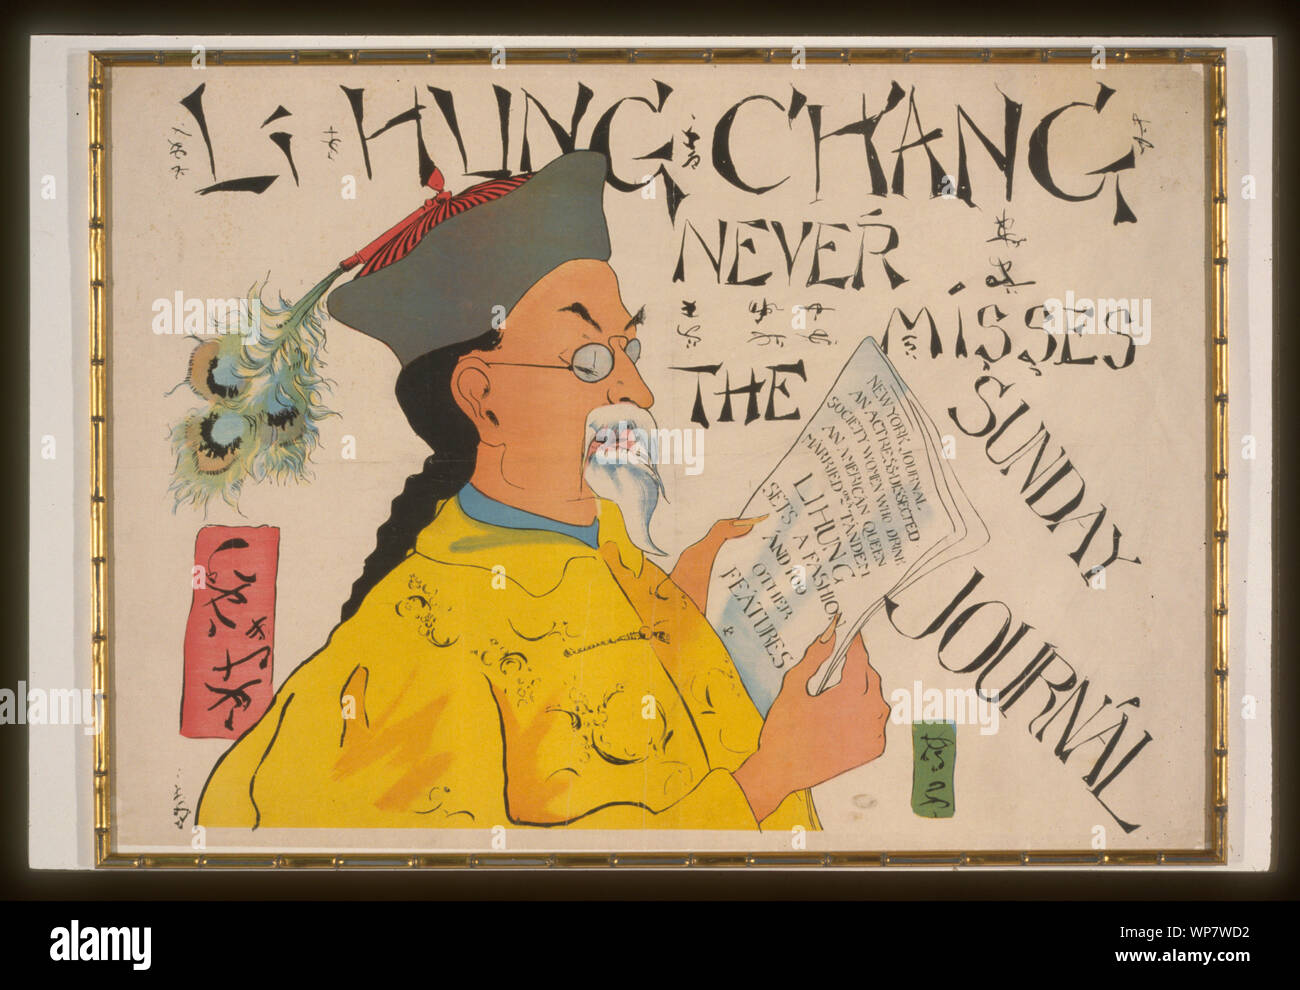 Li HUNG CHANG
NEVER
MISSES
THE
SUNDAY
JOURNAL
NEW YORK JOURNAL
AN ACTRESS DISSECTED
SOCIETY WOMEN WHO DRINK
AN AMERICAN QUEEN
MARRIED ON A TANDEM
LI HUNG
SETS A FASHION
AND 109
OTHER
FEATURES
a
alamy
alamy
Image ID: WP7WD2
www.alamy.com